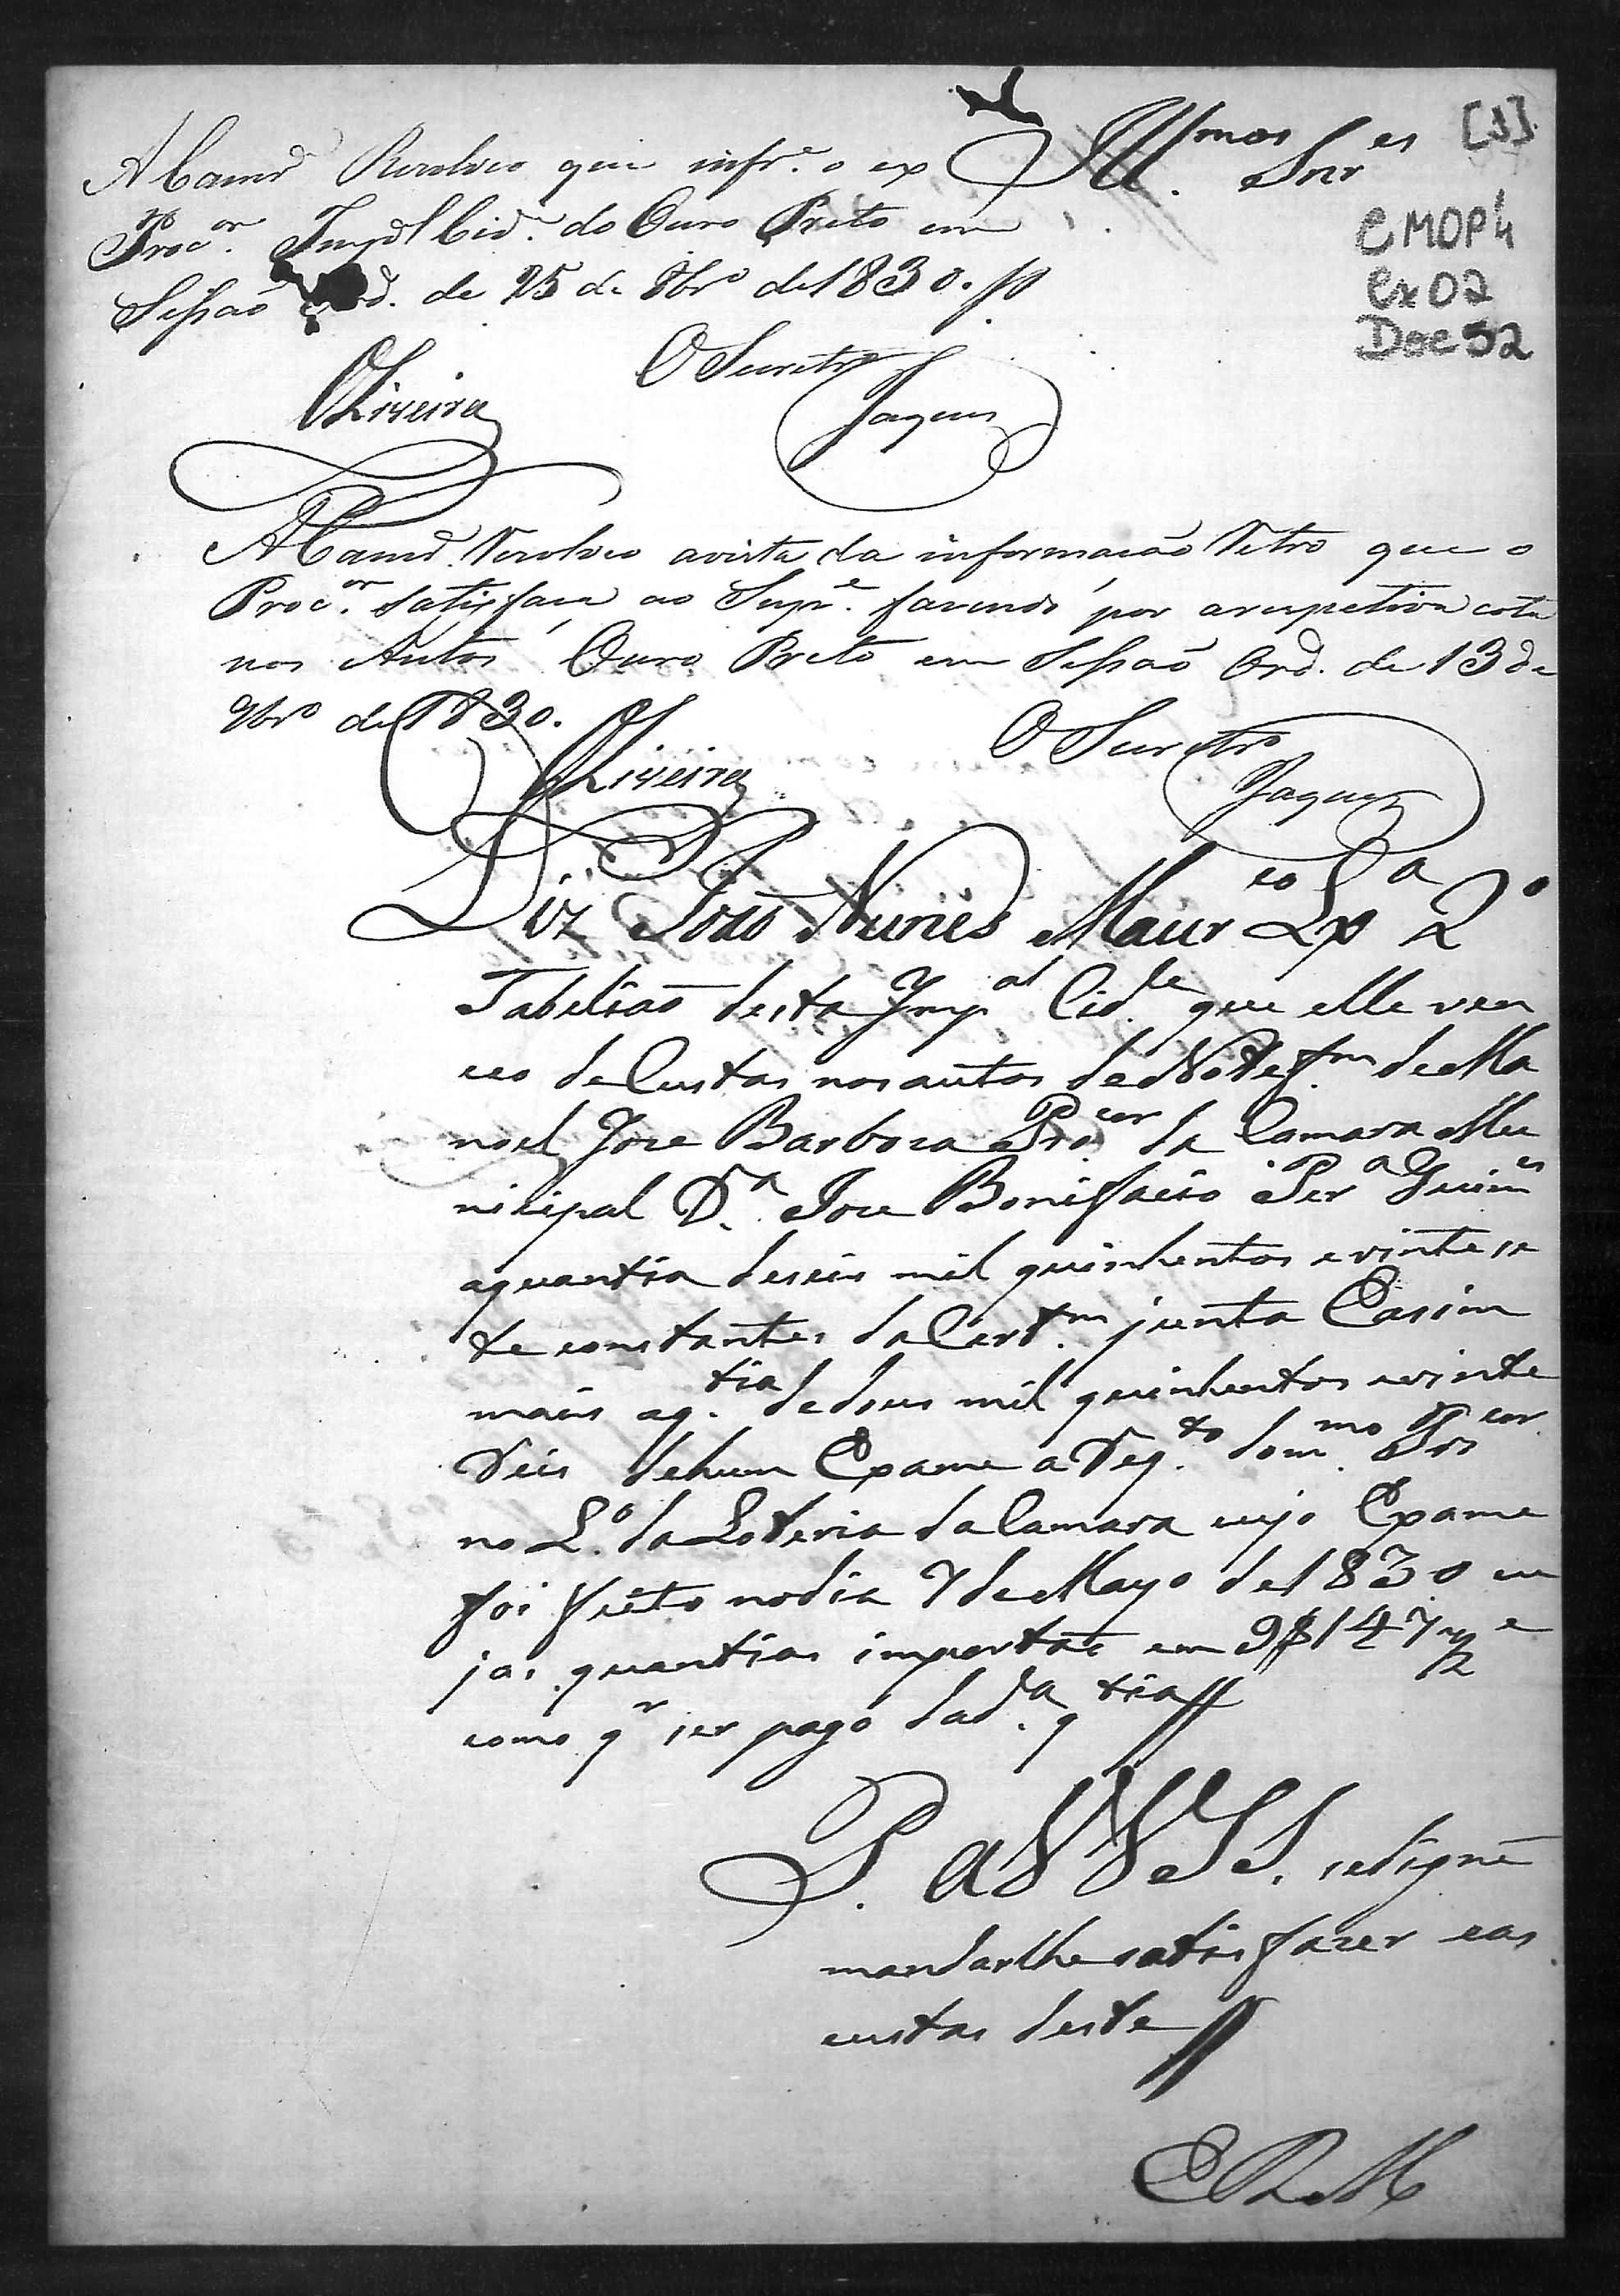 Illmos Snres
[1]
CMOP4
Cx02
Doc 52
A Camr.ª Resolveo que infr.e o ex
Procor. Impal Cid.e do Ouro Preto em
Sessaõ Ord. de 25 de 8bro de 1830.
O Secretro
Oliveira Jaques
A Camr.ª Resolveo avista da informacaõ Retro que o
Procor. satisfaca ao Supe. fazendo por a respetiva cota
nos Autos Ouro Preto em Sessaõ Ord. de 13 de
9bro de 1830.
O Secretro
Oliveira Jaques
Diz Joaõ Nunes Maurco Lxa 2º
Tabeliaõ desta Impal Cid.e que elle ven
ceo de Custas nos autos de Notefm de Ma
noel Joze Barboza Procor da Camara Mu
nicipal D.ª Joze Bonifacio Perª Guimes
aquantia deseis mil quinhentos e vinte se
te constantes da Certm. junta Easim
mais aq.tia dedous mil quinhentos e vinte
Reis dehum Exame a Reqto. dommo. Procor
no L.º da Loteria da Camara cujo Exame
foi feito nodia 7 de Mayo de 1830 cu
jas quantias importaõ em 9$147 1/2 e
como qr ser pago dad.ª qtia
P. a VVSS. sedignē
mandarlhe satisfazer eas
custas deste
E R M